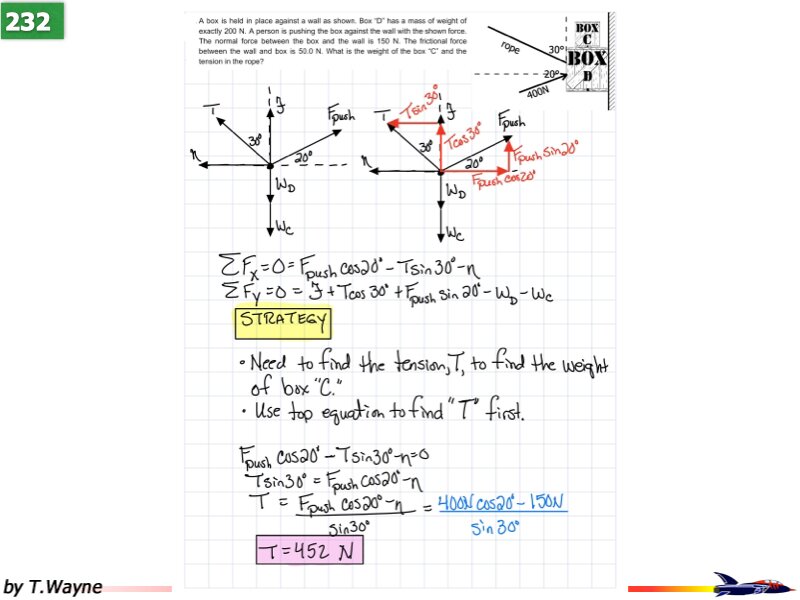 232
A box is held in place against a wall as shown. Box "D" has a mass of weight of
exactly 200 N. A person is pushing the box against the wall with the shown force.
The normal force between the box and the wall is 150 N. The frictional force
between the wall and box is 50.0 N. What is the weight of the box "C" and the
tension in the rope?
rope
30°
20°
400N
BOX
C
BOX
D
T
ℱ
Fpush
30°
20°
n
WD
WC
T
Tsin30°
ℱ
Fpush
30°
Tcos30°
20°
Fpush sin20°
n
Fpush cos20°
WD
WC
ΣFx=0=Fpush cos20° - Tsin30° - n
ΣFy=0 = ℱ + Tcos30° + Fpush sin 20° - WD - WC
STRATEGY
• Need to find the tension, T, to find the weight
of box "C."
• Use top equation to find "T" first.
Fpush cos20° - Tsin30° - n=0
Tsin30° = Fpush cos20° - n
T = Fpush cos20° - n = 400N cos20° - 150N
sin30° sin30°
T=452 N
by T.Wayne